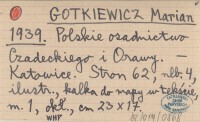 GOTKIEWICZ Marian
1939. Polskie osadnictwo
Czadeckiego i Orawy. —
Katowice. Stron 62, nlb. 4,
ilustr., kalka do mapy w tekście,
m. 1, okł., cm 23 × 17.
WHP